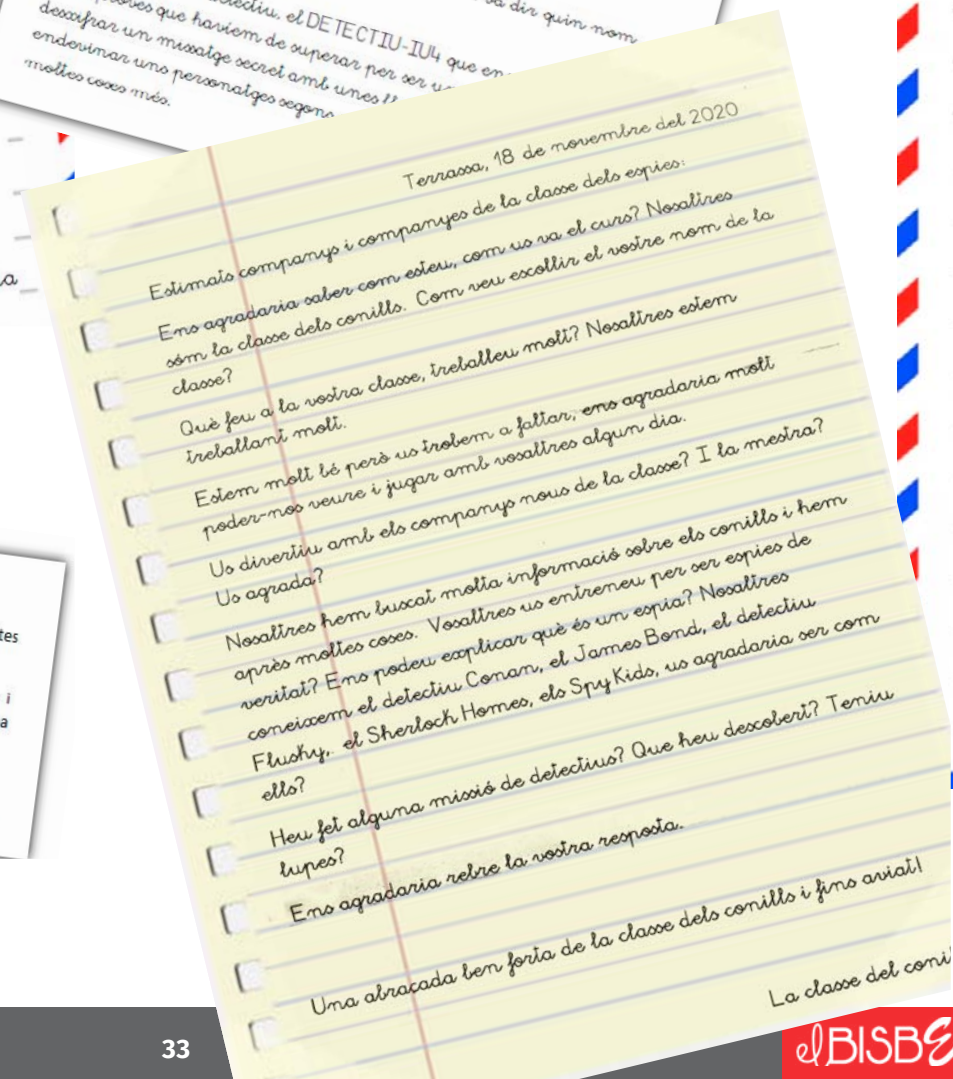 sa dir quin nom
detectiu, el DETECTIU-IU4 que en
proves que havíem de superar per ser u
desxifrar un missatge secret amb unes ll
endevinar uns personatges segons
moltes coses més.
a
tes
i
a
Terrassa, 18 de novembre del 2020
Estimats companys i companyes de la classe dels espies:
Ens agradaria saber com esteu, com us va el curs? Nosaltres
sóm la classe dels conills. Com veu escollir el vostre nom de la
classe?
Què feu a la vostra classe, treballeu molt? Nosaltres estem
treballant molt.
Estem molt bé però us trobem a faltar, ens agradaria molt
poder-nos veure i jugar amb vosaltres algun dia.
Us divertiu amb els companys nous de la classe? I la mestra?
Us agrada?
Nosaltres hem buscat molta informació sobre els conills i hem
après moltes coses. Vosaltres us entreneu per ser espies de
veritat? Ens podeu explicar què és un espia? Nosaltres
coneixem el detectiu Conan, el James Bond, el detectiu
Flushy,. el Sherlock Homes, els Spy Kids, us agradaria ser com
ells?
Heu fet alguna missió de detectius? Que heu descobert? Teniu
lupes?
Ens agradaria rebre la vostra resposta.
Una abraçada ben forta de la classe dels conills i fins aviat!
La classe del coni
33
el BISBE